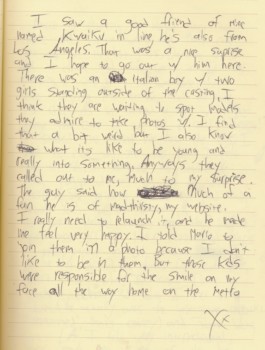 I saw a good friend of mine
named Kyaiku in line, he's also from
Los Angels. That was a nice suprise
and I hope to go out w/ him here.
There was an Italian boy w/ two
girls standing outside of the casting, I
think they are waiting to spot models
they admire to take photos w/. I find
that a bit weird but I also know
what it's like to be young and
really into something. Anyways they
called out to me, much to my surprise.
The guy said how much of a
fan he is of madthirsty, my website.
I really need to relaunch it, and he made
me feel very happy. I told Marco to
join them in a photo because I don't
like to be in them, but those kids
were responsible for the smile on my
face all the way home on the Metro